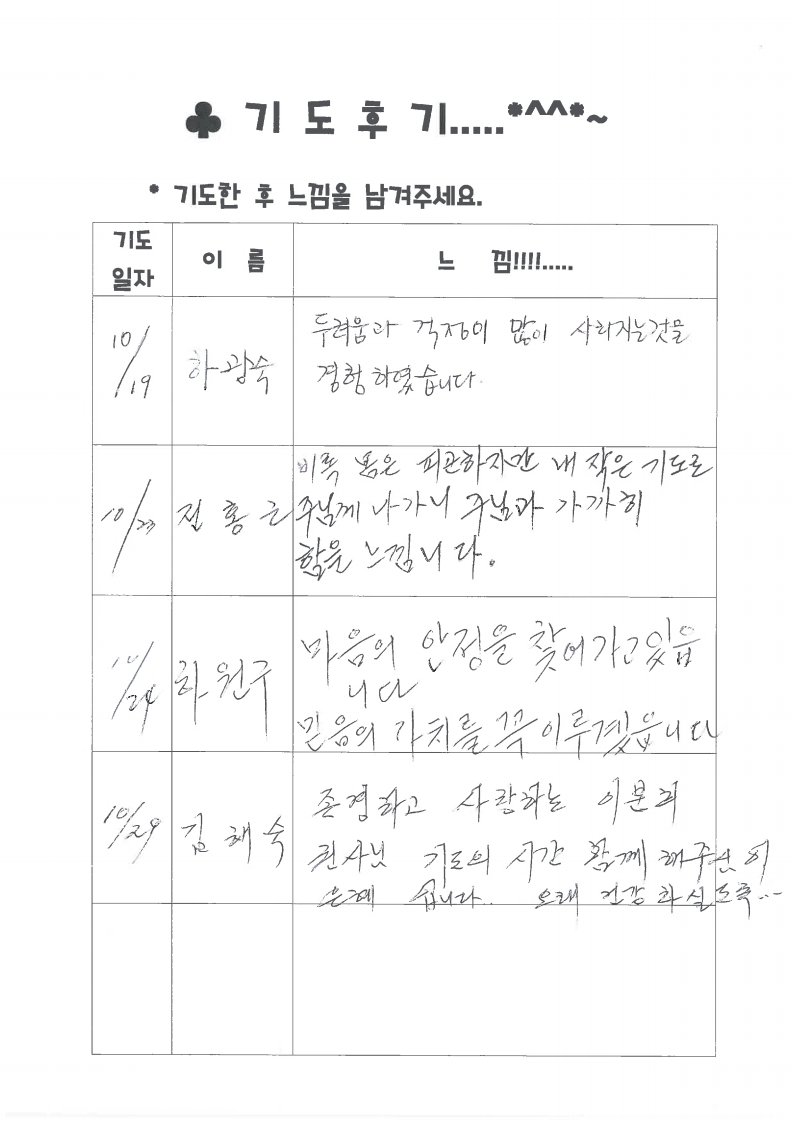 ♣ 기 도 후 기.....*^^*~
* 기도한 후 느낌을 남겨주세요.
기도
일자
이 름
느 낌!!!!.....
10/19
하광숙
두려움과 걱정이 많이 사라지는것을
경험하였습니다.
10/23
전홍근
비록 몸은 피곤하지만 내 작은 기도로
주님께 나가니 주님과 가까히
함을 느낍니다.
10/24
하원구
마음의 안정을 찾어가고있읍
니다
믿음의 가치를 꼭 이루겠읍니다
10/29
김해숙
존경하고 사랑하는 이분희
권사님 기도의 시간 함께 해주신 이
은혜 입니다.. 오래 건강 하실도록...